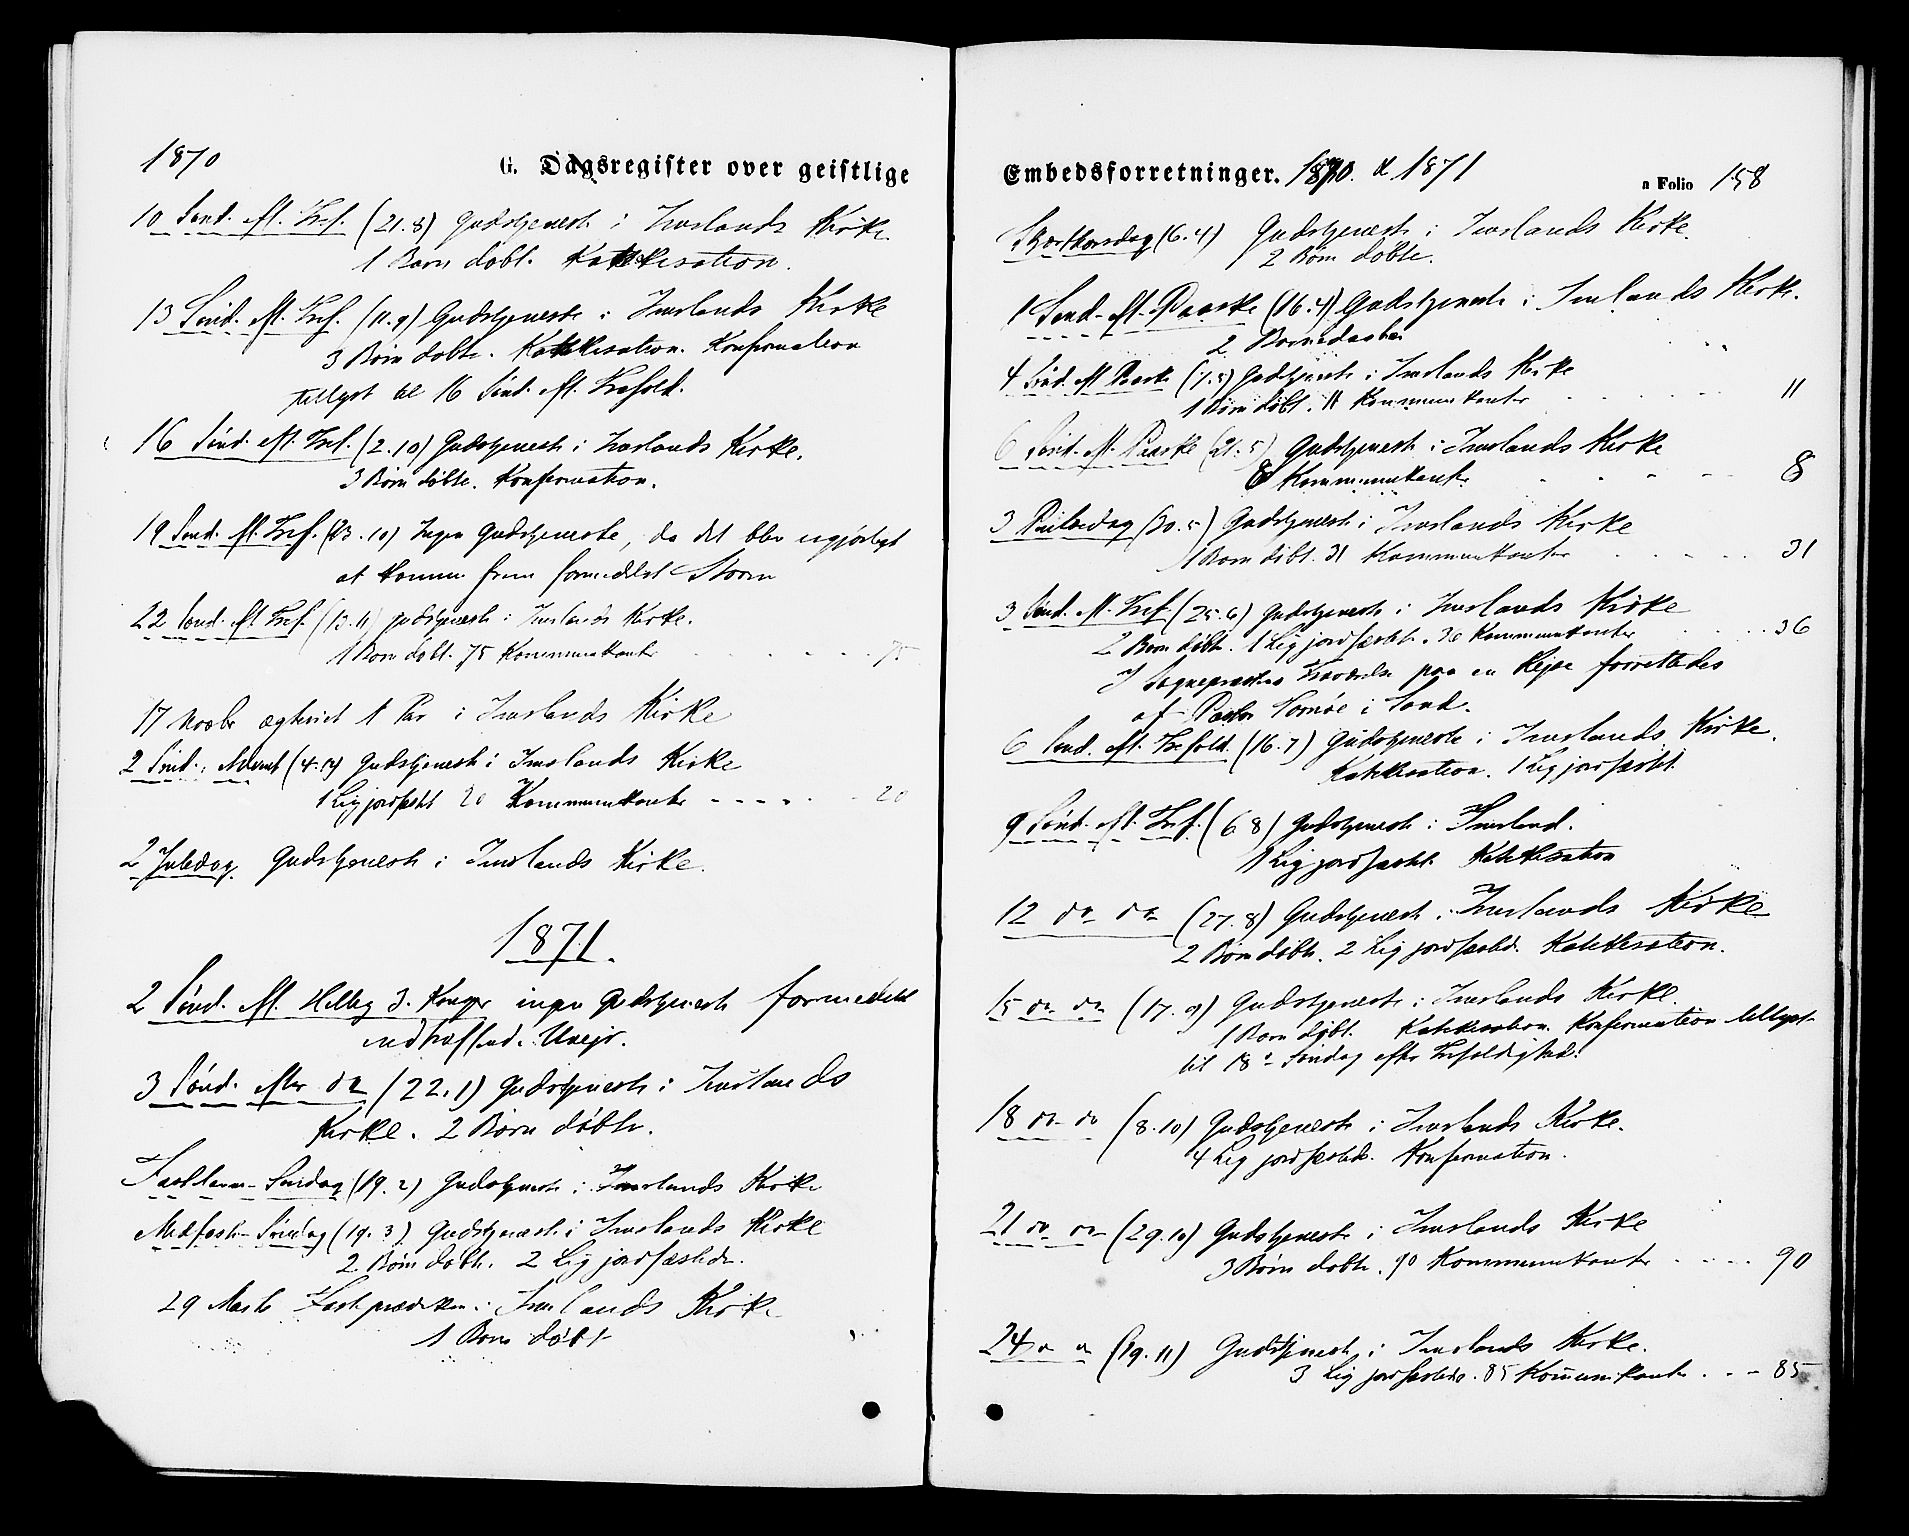 1870
G. Dagsregister over geistlige
10 Sønd. eft. Tref. (21.8) Gudstjeneste i Imslands Kirke.
1 Barn døbt. Katekisation.
13 Sønd. eft. Tref. (11.9) Gudstjeneste i Imslands Kirke
3 Børn døbte. Katekisation. Konfirmation
tillyst til 16 Sønd. eft. Trefold.
16 Sønd. eft. Tref. (2.10) Gudstjeneste i Imslands Kirke.
3 Børn døbte. Konfirmation.
19 Sønd. eft. Tref. (23.10) Ingen Gudstjeneste, da det blev ugjørligt
at komme frem formedelst Storm
22 Sønd. eft. Tref. (13.11) Gudstjeneste i Imslands Kirke.
1 Barn døbt. 75 Kommunikanter 75
17 Novbr ægteviet 1 Par i Imslands Kirke
2 Sønd. i Advent (4.12) Gudstjeneste i Imslands Kirke
1 Lig jordfæstet 20 Kommunikanter 20
2 Juledag Gudstjeneste i Imslands Kirke.
1871.
2 Sønd. eft. Hellig 3. Konger ingen Gudstjeneste formedelst
indtræffende Uvejr.
3 Sønd. efter do (22.1) Gudstjeneste i Imslands
Kirke. 2 Børn døbte.
Fastelavns-Søndag (19.2) Gudstjeneste i Imslands Kirke
Midfaste-Søndag (19.3) Gudstjeneste i Imslands Kirke
2 Børn døbte. 2 Lig jordfæstede.
29 Marts Fasteprædiken i Imslands Kirke
1 Barn døbt
Embedsforretninger. 1870. & 1871
a Folio 158
Skjærthorsdag (6.4) Gudstjeneste i Imslands Kirke.
2 Børn døbte.
1 Sønd. eft. Paaske (16.4) Gudstjeneste i Imslands Kirke.
2 Barnedaaber
4 Sønd. eft. Paaske (7.5) Gudstjeneste i Imslands Kirke
1 Barn døbt. 11 Kommunikanter 11
6 Sønd. eft. Paaske (21.5) Gudstjeneste i Imslands Kirke
8 Kommunikanter 8
3 Pintsedag (30.5) Gudstjeneste i Imslands Kirke
1 Barn døbt. 31 Kommunikanter 31
3 Sønd. eft. Tref. (25.6) Gudstjeneste i Imslands Kirke
2 Børn døbte. 1 Lig jordfæstet. 36 Kommunikanter 36
I Sognepræstens Fraværelse paa en Rejse forrettedes
af Pastor i Sand.
6 Sønd. eft. Trefold. (16.7) Gudstjeneste i Imslands Kirke.
Katekisation. 1 Lig jordfæstet
9 Sønd. eft. Tref. (6.8) Gudstjeneste i Imsland.
1 Lig jordfæstet Katekisation
12 do do (27.8) Gudstjeneste i Imslands Kirke
2 Børn døbte. 2 Lig jordfæstede. Katekisation.
15 do do (17.9) Gudstjeneste i Imslands Kirke.
1 Barn døbt. Katekisation. Konfirmation tillyst
til 18e Søndag efter Trefoldighed.
18 do do (8.10) Gudstjeneste i Imslands Kirke.
4 Lig jordfæstede. Konfirmation.
21 do do (29.10) Gudstjeneste i Imslands Kirke
3 Børn døbte. 90 Kommunikanter 90
24 do do (19.11) Gudstjeneste i Imslands Kirke.
3 Lig jordfæstede. 85 Kommunikanter 85